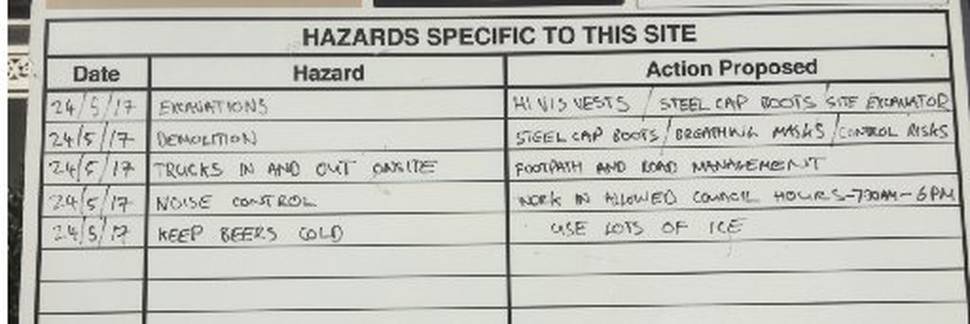 HAZARDS SPECIFIC TO THIS SITE
Date Hazard Action Proposed
24/5/17 EXCAVATIONS HI VIS VESTS / STEEL CAP BOOTS / SITE EXCAVATOR
24/5/17 DEMOLITION STEEL CAP BOOTS / BREATHING MASKS / CONTROL RISKS
24/5/17 TRUCKS IN AND OUT ONSITE FOOTPATH AND ROAD MANAGEMENT
24/5/17 NOISE CONTROL WORK IN ALLOWED COUNCIL HOURS-7:30AM-6PM
24/5/17 KEEP BEERS COLD USE LOTS OF ICE